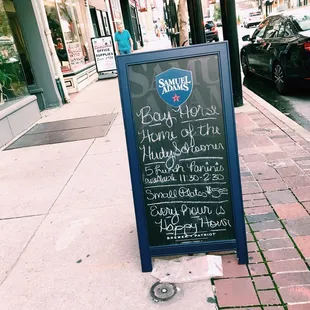 SAMUEL ADAMS
Bay Horse
Home of the
Hudy Schooner
5 Lunch Paninis
available 11:30-2:30
Small Plates $5
Every Hour is
Happy Hour
BREWER PATRIOT